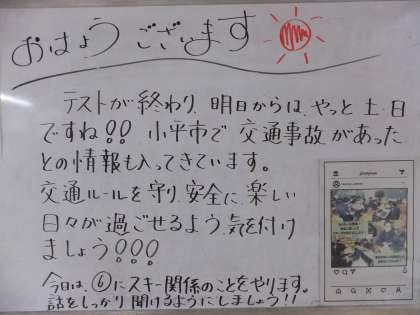 おはようございます
テストが終わり、明日からは、やっと土・日
ですね!! 小平市で交通事故があった
との情報も入ってきています。
交通ルールを守り、安全に、楽しい
日々が過ごせるよう、気を付け
ましょう!!!
今日は、⑥にスキー関係のことをやります。
話をしっかり聞けるようにしましょう!!